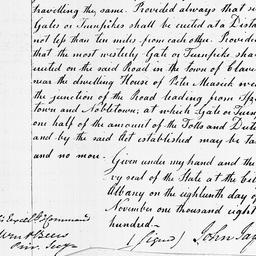 travelling the same. Provided always that no
Gates or Turnpikes shall be erected at a Dista
not less than ten miles from each other. Provide
that the most westerly Gate or Turnpike sha
erected on the said Road in the town of Clave
near the dwelling House of Peter Mesick we
the junction of the Road leading from
town and Nobletown; at which Gate or Turn
one half of the amount of the Tolls and Duti
and by the said Act established may be ta
and no more.
Given under my hand and the
vy seal of the State at the Cit
Albany on the eighteenth day of
November one thousand eight
hundred—
(Signed) John Jay
Command